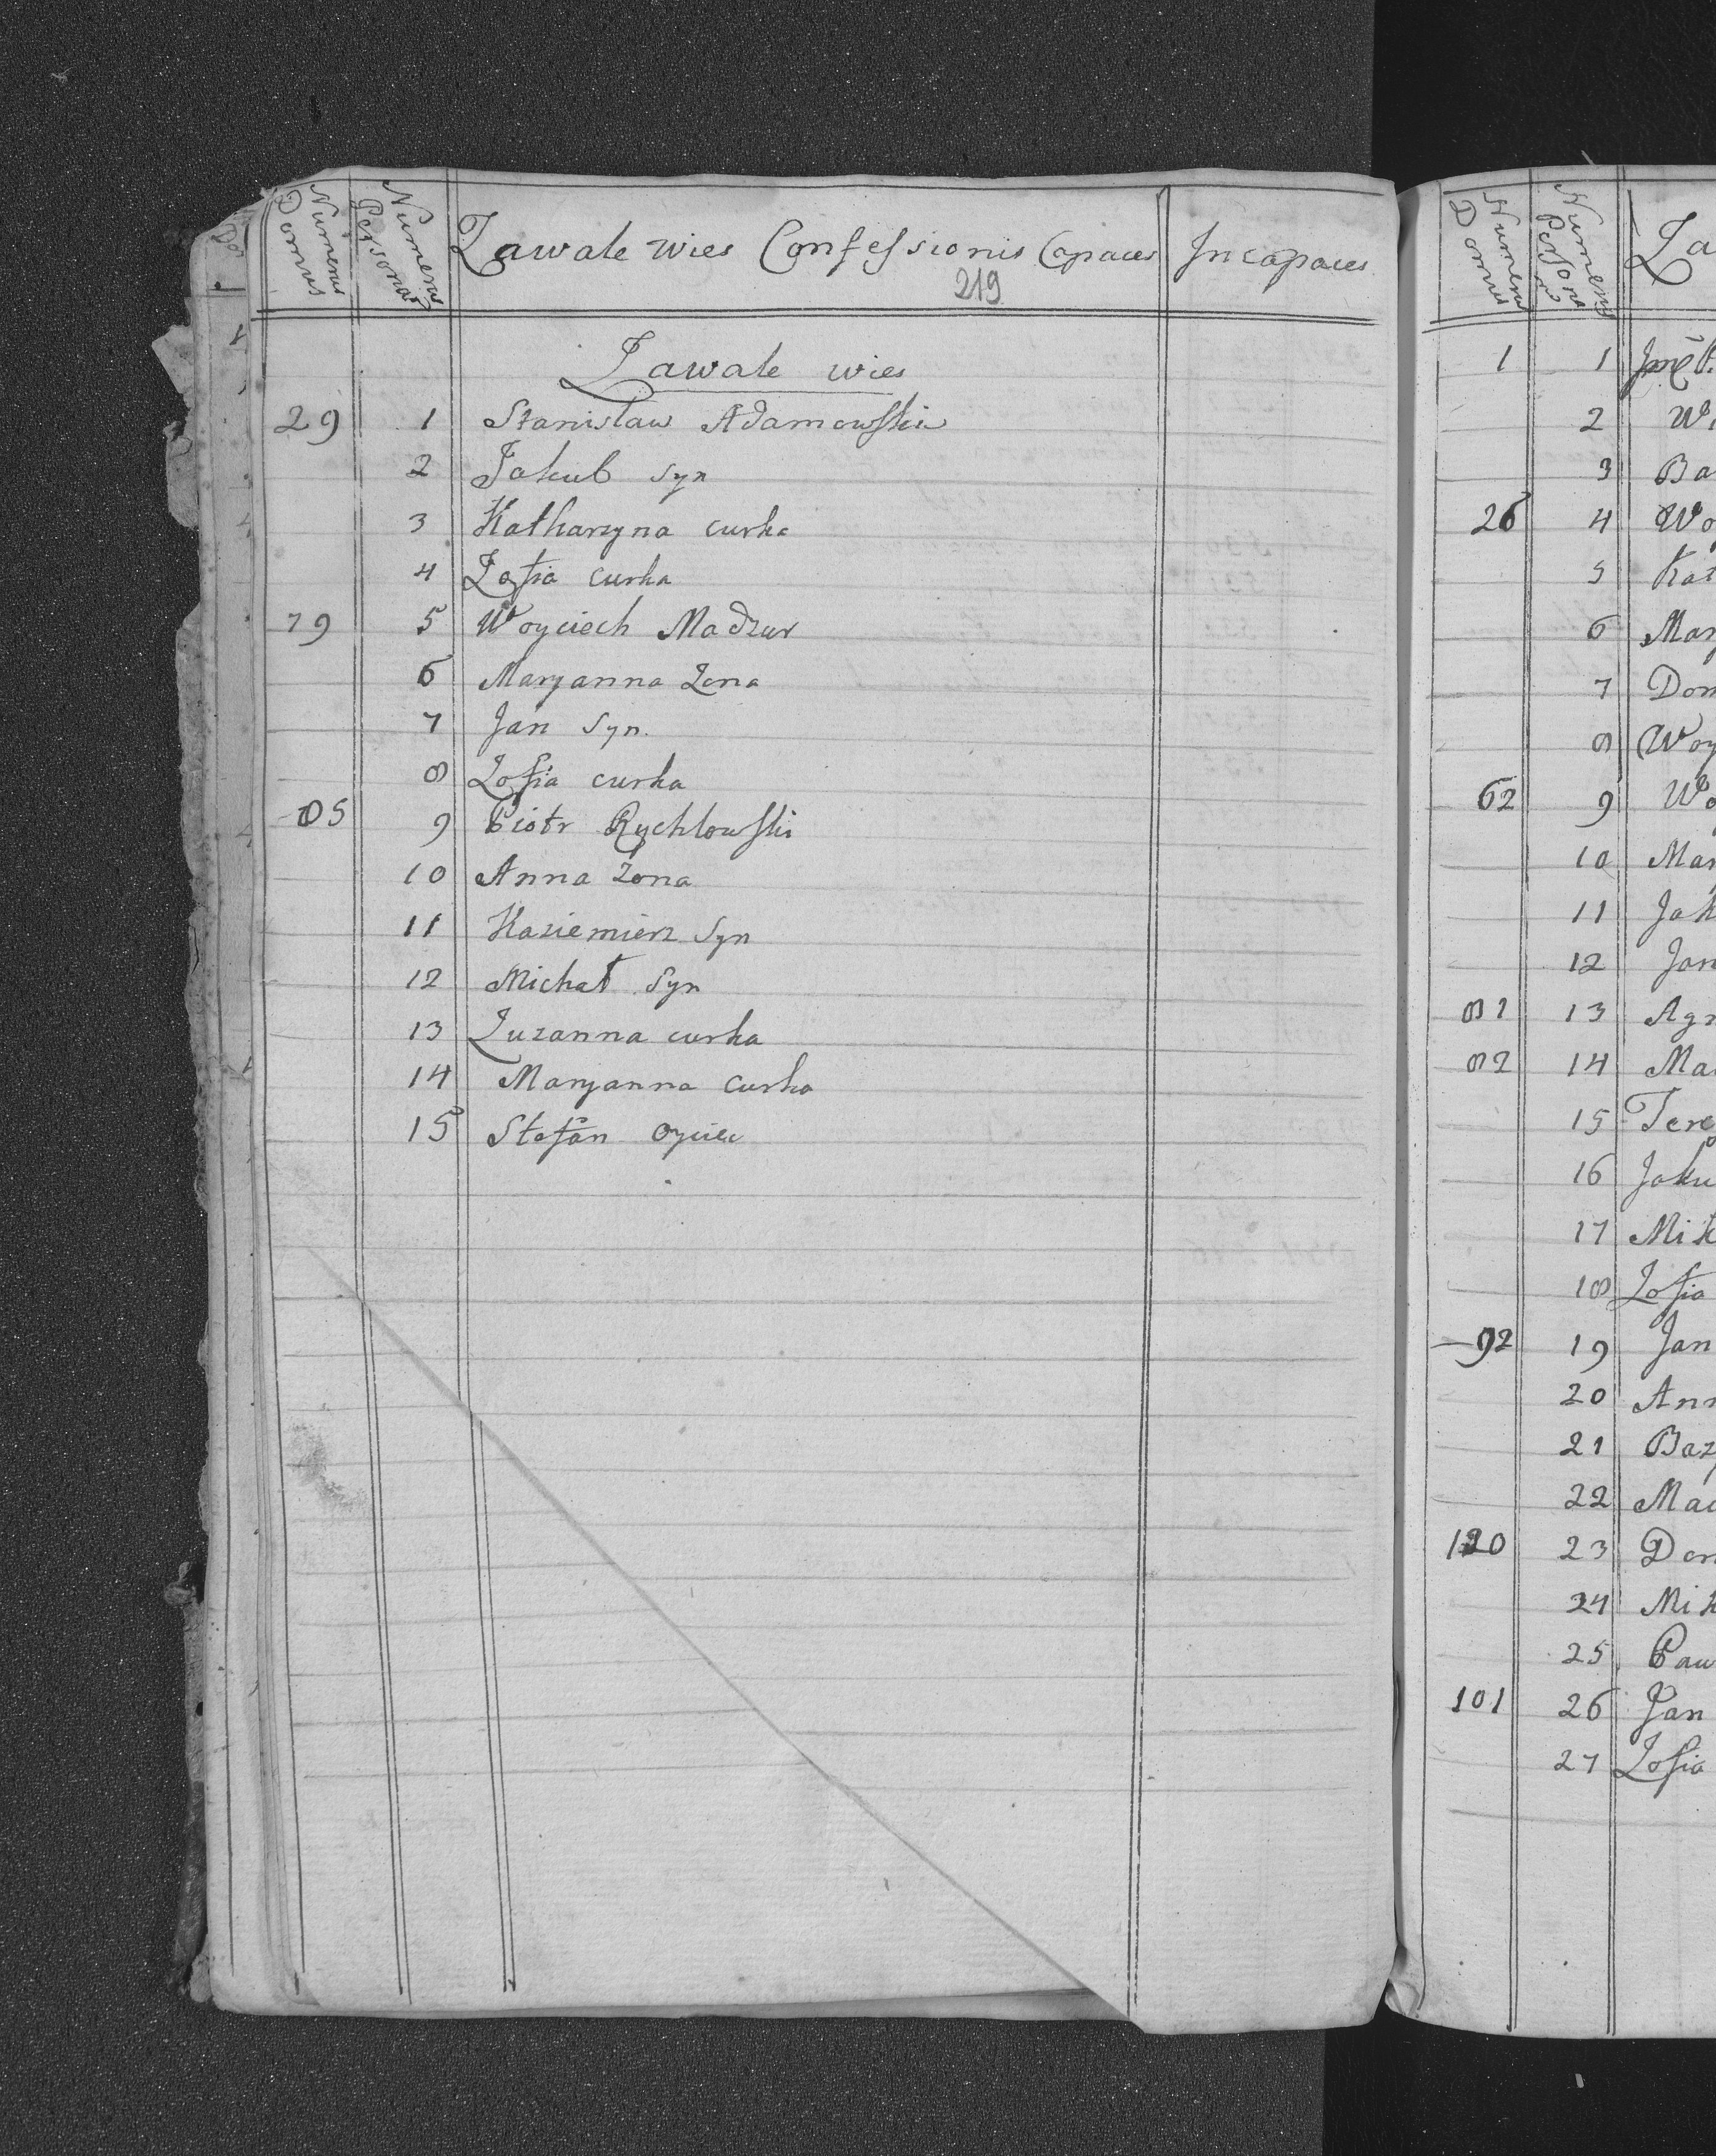 Numerus Domus
Numerus Personar
Zawale wies Confessionis Capaces
Incapaces
219
Zawale wies
29 1 Stanislaw Adamowski
2 Jakub syn
3 Katharzyna curka
4 Zofia curka
79 5 Woyciech Madzur
6 Maryanna Zona
7 Jan Syn.
8 Zofia curka
85 9 Piotr Rychlowski
10 Anna Zona
11 Kaziemierz Syn
12 Michał Syn
13 Zuzanna curka
14 Maryanna curka
15 Stefan Oyciec
Numerus Domus
Numerus Persona
Za
1 1
2 Wi
3 Ba
26 4 Wo
5 Kat
6 Mary
7 Dom
8 Woy
62 9 Wo
10 Mar
11 Jak
12 Jan
81 13 Agn
82 14 Ma
15 Tere
16 Jaku
17 Mik
18 Zofia
92 19 Jan
20 Ann
21 Baz
22 Mac
23 Dom
24 Mik
25 Paw
101 26 Jan
27 Zofia